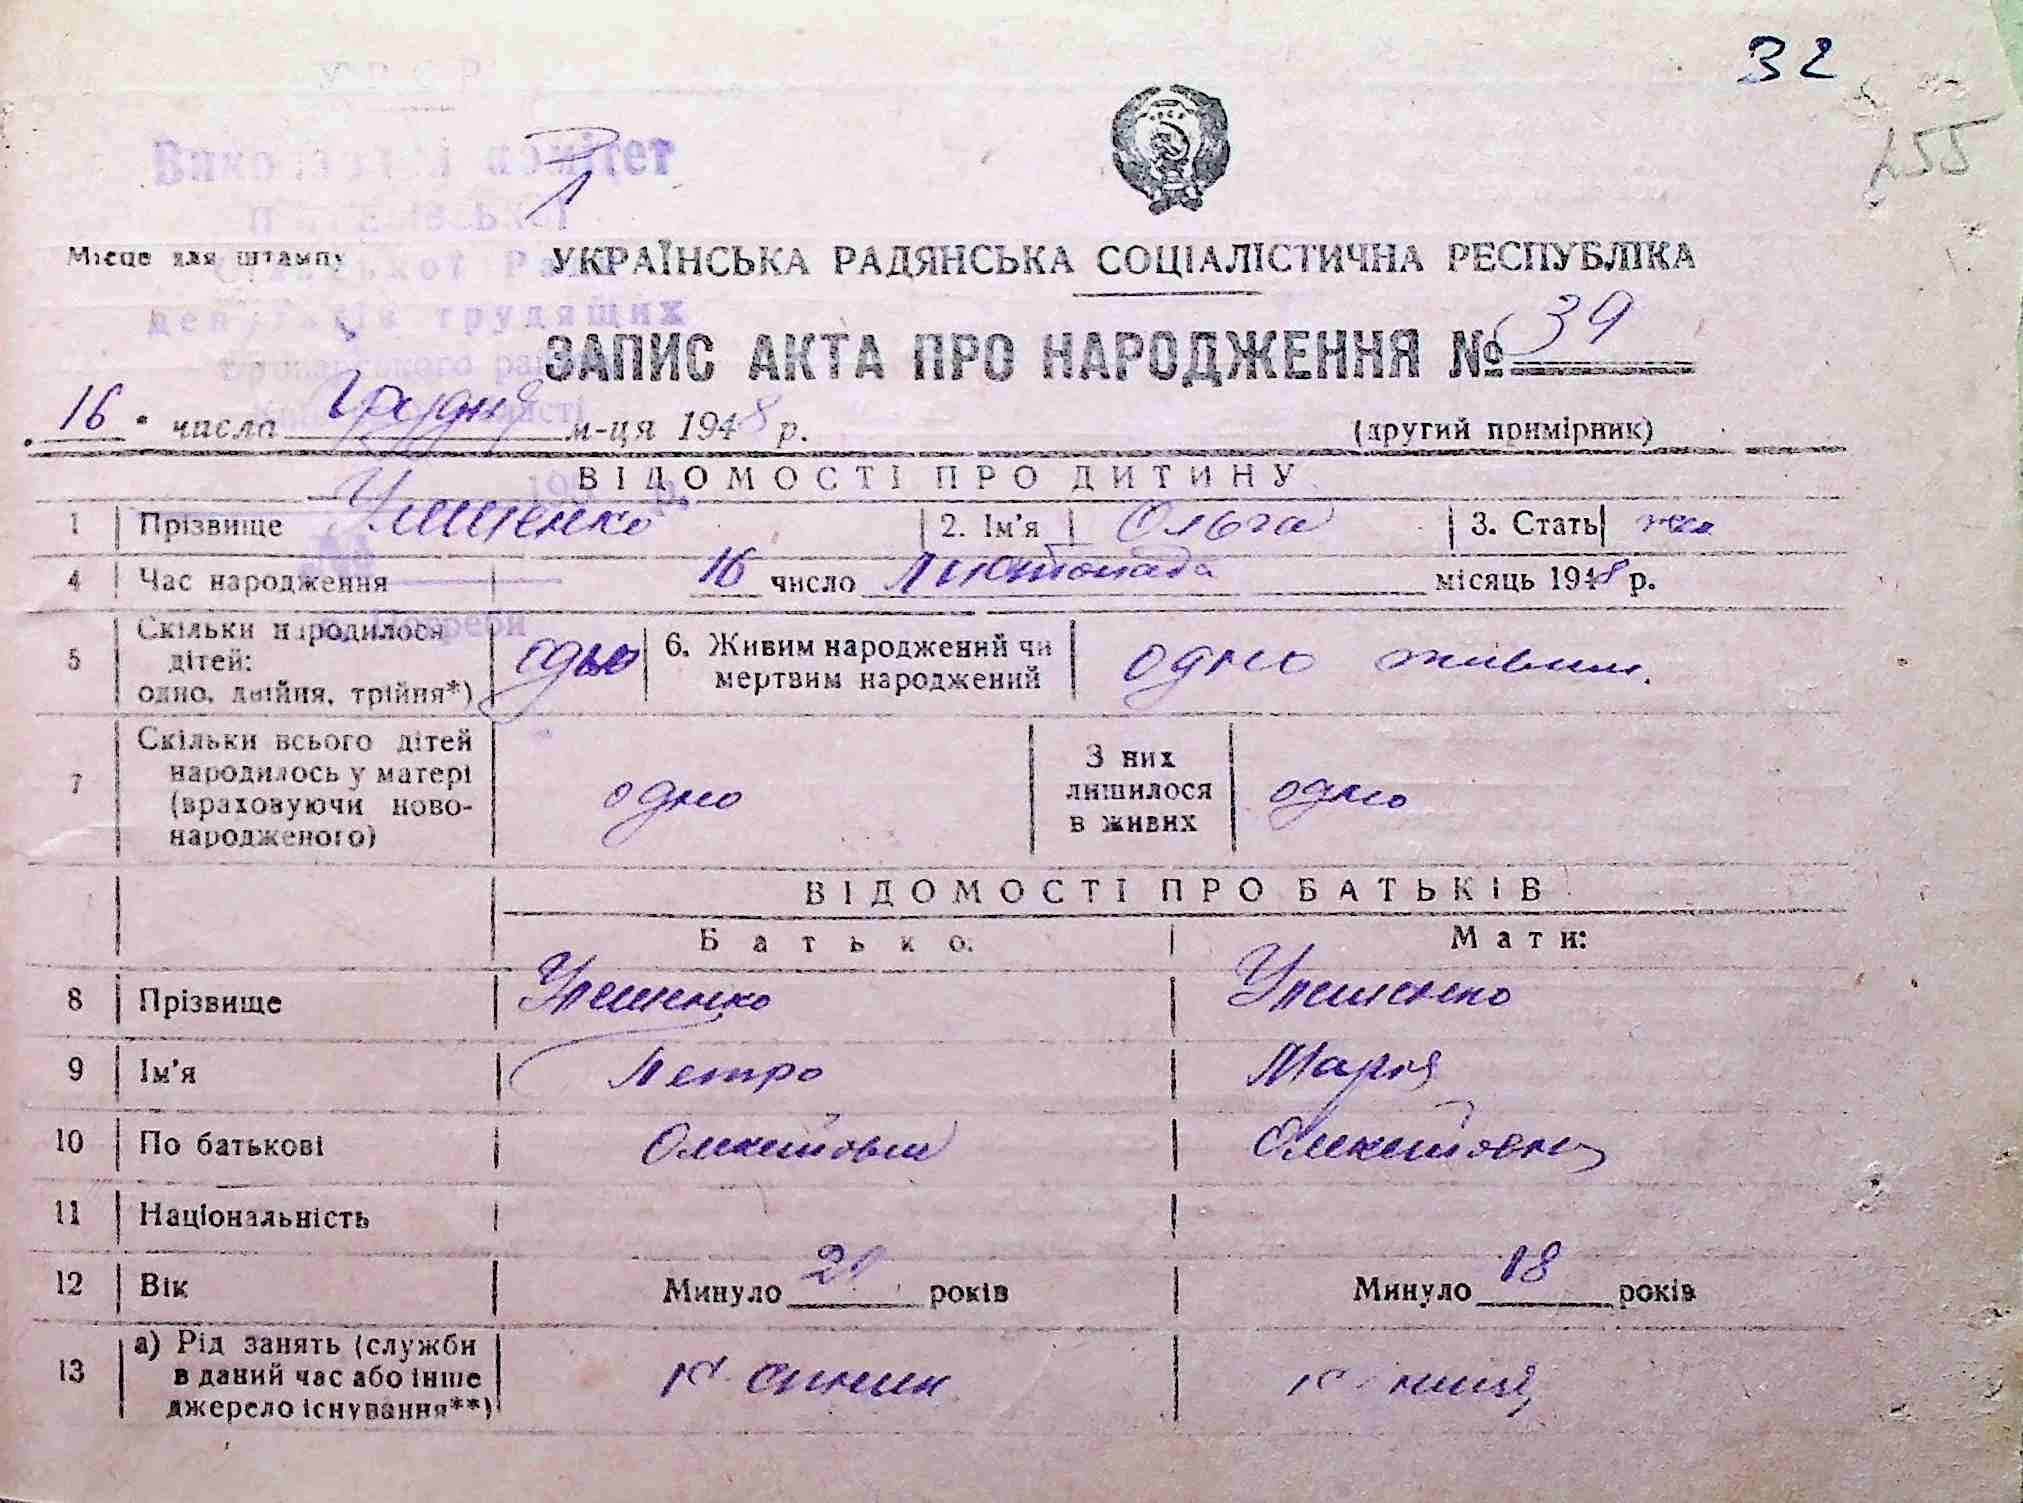 32
255
У Р С Р
Виконавчий комітет
Місце для штампу
УКРАЇНСЬКА РАДЯНСЬКА СОЦІАЛІСТИЧНА РЕСПУБЛІКА
Сільської Ради
депутатів трудящих
ЗАПИС АКТА ПРО НАРОДЖЕННЯ № 39
16 числа Грудня м-ця 1948 р.
(другий примірник)
ВІДОМОСТІ ПРО ДИТИНУ
1 Прізвище 2. Ім'я Ольга 3. Стать жен
4 Час народження 16 число Листопада місяць 1948 р.
5 Скільки народилося дітей: одно, двійня, трійня*) одно 6. Живим народжений чи мертвим народжений одно живим.
7 Скільки всього дітей народилось у матері (враховуючи новонародженого) одно З них лишилося в живих одно
ВІДОМОСТІ ПРО БАТЬКІВ
Батько: Мати:
8 Прізвище
9 Ім'я Петро Марія
10 По батькові
11 Національність
12 Вік Минуло 21 років Минуло 18 років
13 а) Рід занять (служби в даний час або інше джерело існування**)